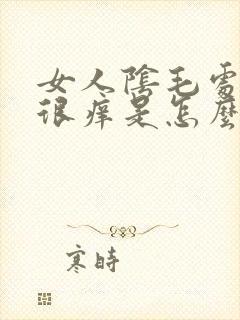 女人陰毛處
很痒是怎麼
寒時